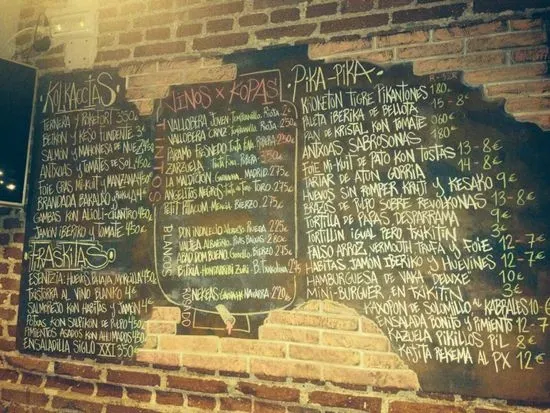 KILKACCIAS
TERNERA Y RokEfoRT 350
BEIKON Y KESO FUNDENTE 3
SALMÓN Y MAHONESA DE NUEZ
ANTXOAS Y TOMATES DE SOL 450
FOIE GRAS MI-KUIT Y MANZANA 450
BRANDADA BAKALAO
GAMBAS KON ALIOLI-CILANTRO 450
JAMÓN IBERIKO Y TOMATE 450
FRASKITAS
ESENTZIA: HUEVOS BAJA
TXISTORRA AL VINO BLANKO 4€
SALMOREJO KON HABITAS Y JAMÓN 4€
KON SALPIKÓN DE PULPO
PIMIENTOS ASADOS KON AHUMADOS
ENSALADILLA SIGLO XXI 350€
VINOS x KOPAS
TINTOS
VALLOBERA JOVEN TEMPRANILLO RIOJA 2€
VALLOBERA CRIANZ TEMPRANILLO RIOJA 250€
PÁRAMO FRESNEDO TINTA FINA RIBERA 250€
ZARZALEJA TINTA FINA RIBERA
LA MALDICIÓN GARNACHA MADRID 275€
ANGELITOS NEGROS TINTA DE TORO TORO 275€
PETIT PITACUM MENCÍA BIERZO 275€
BLANCOS
DON INDALECIO RUEDA
VALDEA ALBARIÑO RIAS BAIXAS
ABAD DOM BUENO GODELLO BIERZO
BITXIA HONDARRIBI ZURI 275€
ROSADO
NEKEAS GARNACHA NAVARRA 220€
PIKA-PIKA
KROKETÓN TIGRE PIKANTONES 180€
PALETA IBERIKA DE BELLOTA 15 - 8€
PAN DE KRISTAL KON TOMATE 180€
ANTXOAS SABROSONAS 060€
FOIE MI-KUIT DE PATO KON TOSTAS 13 - 8€
TARTAR DE ATÚN GORRIA 14 - 8€
HUEVOS SIN ROMPER KRIJI Y KESAKO 9€
BRAZOS DE PULPO SOBRE REVOLKONAS 13 - 8€
TORTILLA DE PAPAS DESPARRAMÁ 9€
TORTILLIN IGUAL PERO TXIKITIN 3€
FALSO ARROZ VERMOUTH TRUFA Y FOIE 12 - 7€
HABITAS JAMÓN IBERIKO Y HUEVINES 12 - 7€
HAMBURGUESA DE VAKA DELUXE 10€
MINI-BURGUER EN TXIKITIN 3€
KAXOPÍN DE SOLOMILLO AL KABRALES 10€
ENSALADA BONITO Y PIMIENTO 12 - 7€
KAZUELA PIKILLOS PIL 8€
KAJITA REKEMA AL PX 12€